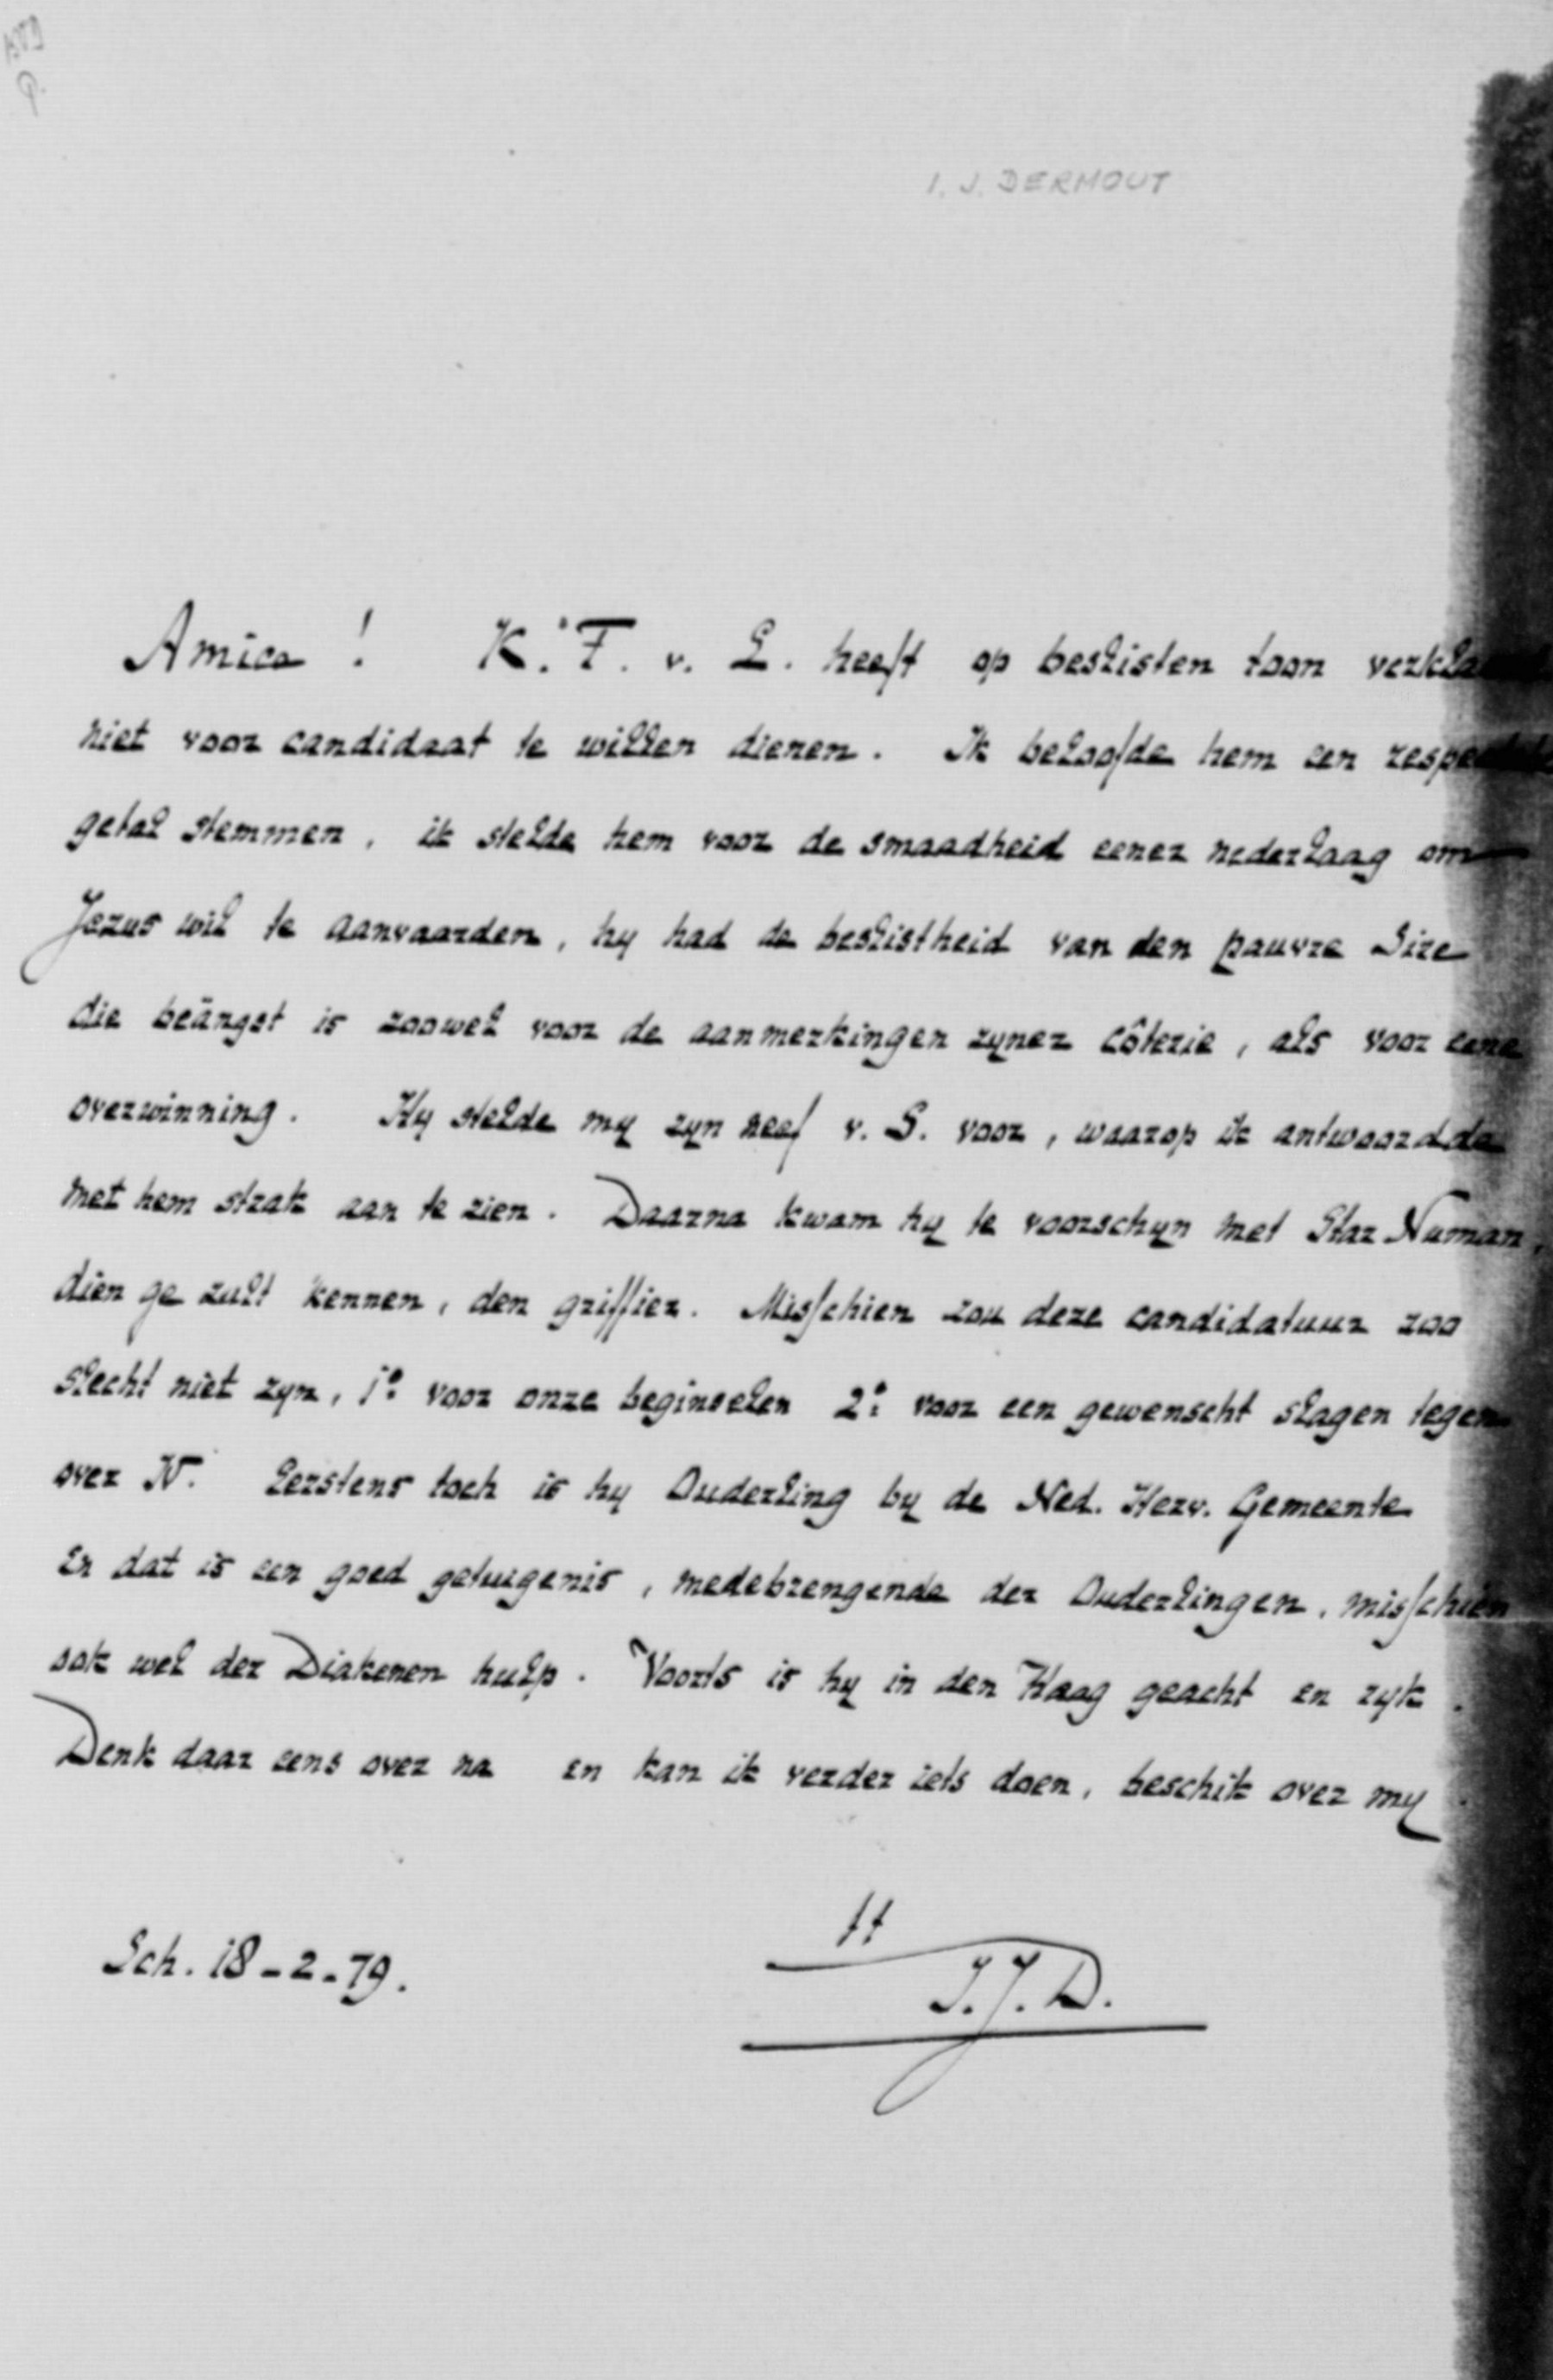 I. J. DERMOUT
Amice ! K. F. v. L. heeft op beslisten toon verklaard
niet voor candidaat te willen dienen. Ik beloofde hem een
getal stemmen, ik stelde hem voor de smaadheid eener nederlaag om
Jezus wil te aanvaarden, hy had de beslistheid van den pauvre Sire
die beängst is zoowel voor de aanmerkingen zyner côterie, als voor eene
overwinning. Hy stelde my zyn neef v. S. voor, waarop ik antwoordde
met hem strak aan te zien. Daarna kwam hy te voorschyn met Star Numan,
dien ge zult kennen, den griffier. Misschien zou deze candidatuur zoo
slecht niet zyn, 1º voor onze beginselen 2º voor een gewenscht slagen tegen
over N. Eerstens toch is hy Ouderling by de Ned. Herv. Gemeente
En dat is een goed getuigenis, medebrengende der Ouderlingen, misschien
ook wel der Diakenen hulp. Voorts is hy in den Haag geacht en ryk.
Denk daar eens over na en kan ik verder iets doen, beschik over my.
tt
Sch. 18-2-79.
I.J.D.